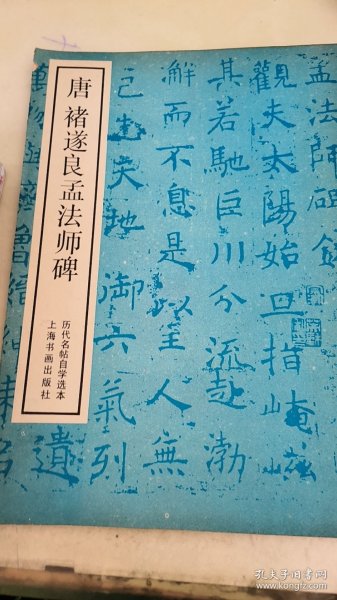 唐 褚遂良孟法师碑
历代名帖自学选本
上海书画出版社
孟法師碑銘
觀夫太陽始旦指崦嵫
其若馳巨川分流赴渤
澥而不息是以至人無
己先天地御六氣列
遺
孔夫子旧书网
kongfz.com